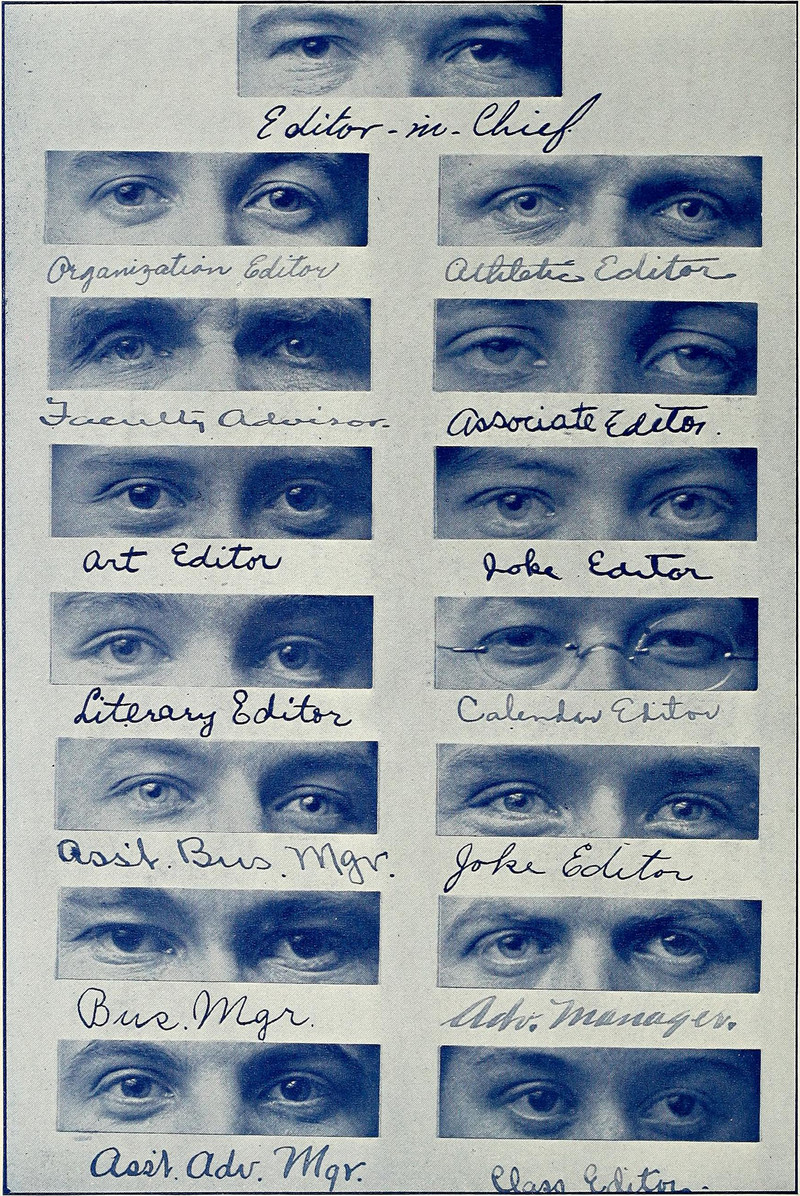 Editor-in-Chief
Organization Editor
Athletic Editor
Faculty Advisor.
Associate Editor.
Art Editor
Joke Editor
Literary Editor
Calendar Editor
Ass't. Bus. Mgr.
Joke Editor
Bus. Mgr.
Adv. Manager.
Ass't. Adv. Mgr.
Class Editor.